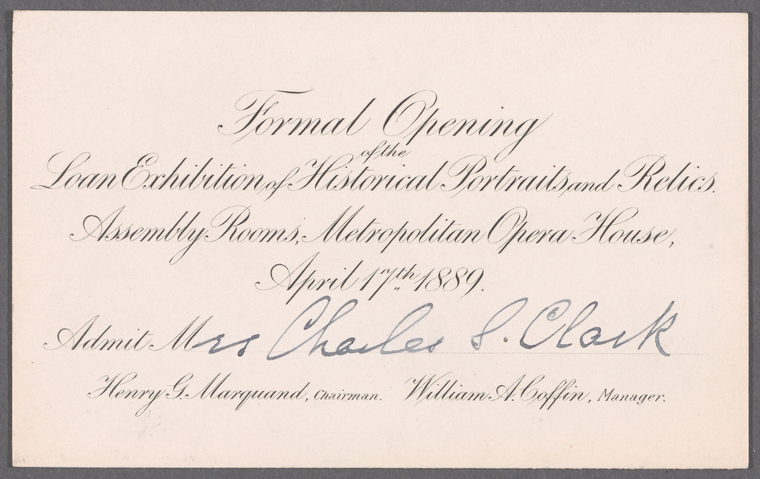 Formal Opening
of the
Loan Exhibition of Historical Portraits and Relics.
Assembly Rooms, Metropolitan Opera House,
April 17th 1889.
Admit Mrs Charles S. Clark
Henry G. Marquand, Chairman. William A. Coffin, Manager.